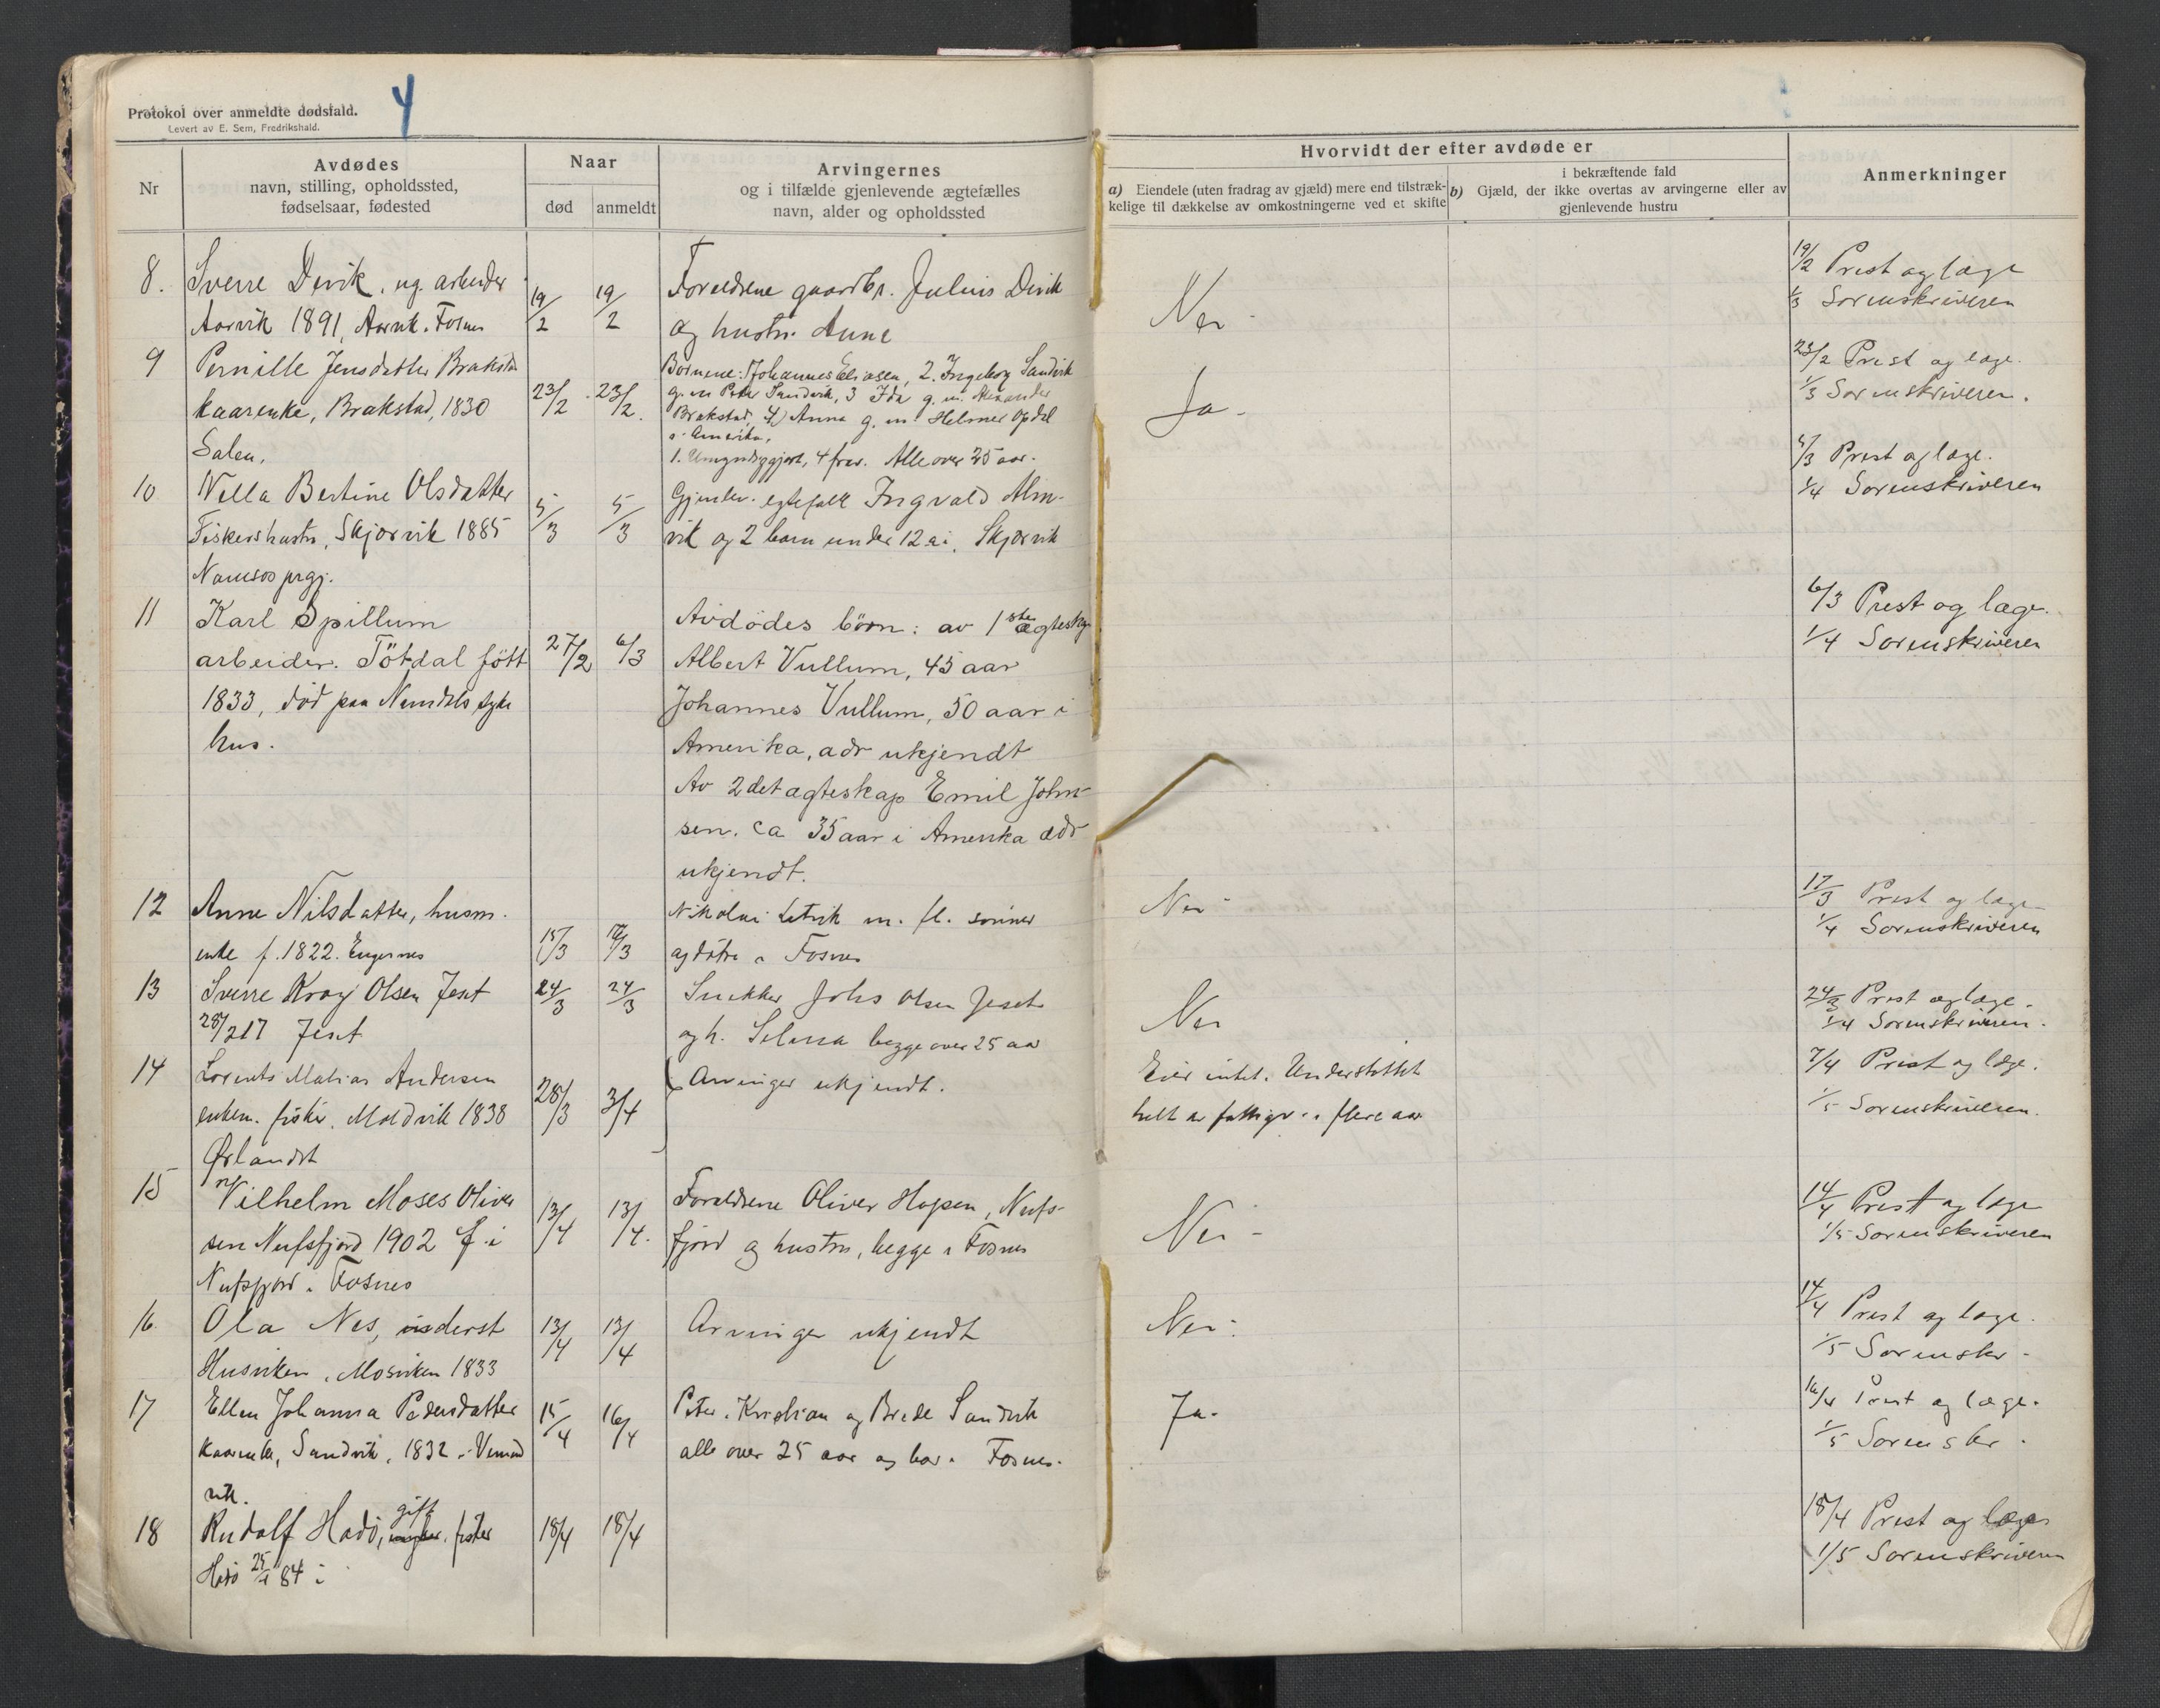 Protokol over anmeldte dødsfald.
Levert av E. Sem, Fredrikshald.
4
Nr
Avdødes
navn, stilling, opholdssted,
fødselsaar, fødested
Naar
død
anmeldt
Arvingernes
og i tilfælde gjenlevende ægtefælles
navn, alder og opholdssted
Hvorvidt der efter avdøde er
a) Eiendele (uten fradrag av gjæld) mere end tilstræk-
kelige til dækkelse av omkostningerne ved et skifte
i bekræftende fald
b) Gjæld, der ikke overtas av arvingerne eller av
gjenlevende hustru
Anmerkninger
8. Sverre Devik, ug. arbeider
Aarvik 1891, Aarvik. Fosnes
19/2 19/2
Foreldrene gaardbr. Julius Devik
og hustru Anne
Nei
19/2 Prest og læge
1/3 Sorenskriveren
9 Pernille Jensdatter Brakstad
kaarenke, Brakstad, 1830
Salen,
23/2 23/2
Börnene: Johannes Eliasen, 2. Ingeborg Sandvik
g. m Peter Sandvik, 3 Ida g. m. Alexander
Brakstad, 4) Anna g. m Helmer Opdal
i Amerika,
1. Umyndiggjort, 4 frav. Alle over 25 aar.
Ja
23/2 Prest og læge.
1/3 Sorenskriveren.
10 Nella Bertine Olsdatter
Fiskershustru, Skjærvik 1885
Namsos prgj.
5/3 5/3
Gjenlev. egtefælle Ingvald Alm-
vik og 2 barn under 12 a i. Skjærvik
5/3 Prest og læge.
1/4 Sorenskriveren
11 Karl Spillum
arbeider. Tötdal fött
1833, död paa Namdals syke
hus.
27/2 6/3
Avdödes börn: av 1ste ægtesk.
Albert Vullum, 45 aar
Johannes Vullum, 50 aar i
Amerika, adr ukjendt
Av 2det ægteskap Emil John-
sen. ca 35 aar i Amerika adr
ukjendt.
6/3 Prest og læge.
1/4 Sorenskriveren
12 Anne Nilsdatter, husm.
enke f. 1822. Engesnes
15/3 17/3
Nikolai m. fl. sönner
og dötre i Fosnes
Nei
17/3 Prest og læge
1/4 Sorenskriveren
13 Sverre Olsen Jext
28/2 17 Jext
24/3 24/3
Snekker Johs Olsen Jext
og h. Selma begge over 25 aar
Nei
24/3 Prest og læge.
1/4 Sorenskriveren.
14 Lorents Matias Andersen
enkem. fisker. Moldvik 1838
Ørlandet
28/3 3/4
Arvinger ukjendt.
Eier intet. Understöttet
helt av fattigv. i flere aar
7/4 Prest og læge.
1/5 Sorenskriveren.
15 Vilhelm Moses Oliver
sen Nufsfjord 1902 f. i
Nufsfjord i Fosnes
13/4 13/4.
Foreldrene Oliver Hopen, Nufs-
fjord og hustru, begge i Fosnes
Nei
14/4 Prest og læge
1/5 Sorenskriveren
16 Ola Nes, underst
Husviken, Mosviken 1833
13/4 13/4
Arvinger ukjendt
Nei
14/4 Prest og læge.
1/5 Sorenskr
17 Ellen Johanna Pedersdatter
kaarenke, Sandvik, 1832 i Vemund
vik.
15/4 16/4
Peter, Kristian og Brede Sandvik
alle over 25 aar og bor i Fosnes.
Ja.
16/4 Prest og læge.
1/5 Sorenskr.
18 Rudolf Hadö, gift fisker
Hadö 84 i
18/4 18/4
18/4 Prest og læge
1/5 Sorenskriveren